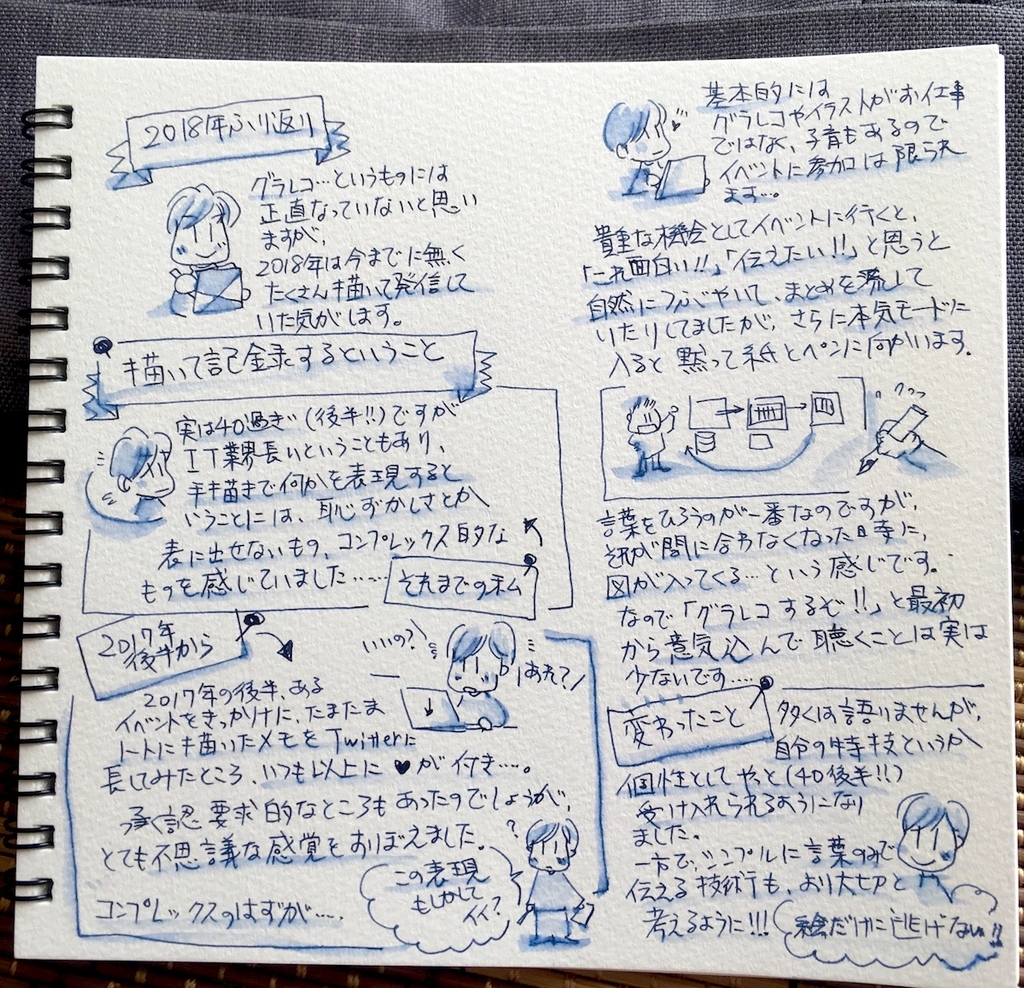 2018年ふり返り
グラレコ…というものには
正直なっていないと思い
ますが、
2018年は今までに無く
たくさん描いて発信して
いた気がします。
描いて記録するということ
実は40過ぎ(後半!!)ですが
IT業界長いということもあり、
手描きで何かを表現すると
いうことには、恥ずかしさとか
表に出せないもの、コンプレックス的な
ものを感じていました……
それまでの私
2017年
後半から
いいの?!
あれ?
2017年の後半、ある
イベントをきっかけに、たまたま
ノートに描いたメモをTwitterに
してみたところ、いつも以上に♥が付き…。
承認要求的なところもあったのでしょうが、
とても不思議な感覚をおぼえました。
コンプレックスのはずが….
?
この表現
もしかして
イイ?
基本的には
グラレコやイラストがお仕事
ではなく、子育もあるので
イベントに参加は限られ
ます…。
貴重な機会としてイベントに行くと、
「これ面白い!!」「伝えたい!!」と思うと
自然につぶやいて、まとめを流して
いたりしてましたが、さらに本気モードに
入ると黙って紙とペンに向かいます。
クワッ
言葉をひろうのが一番なのですが、
それが間に合わなくなった時に、
図が入ってくる…という感じです。
なので「グラレコするぞ!!」と最初
から意気込んで聴くことは実は
少ないです….
変わったこと
多くは語りませんが、
自分の特技というか
個性としてやっと(40後半!!)
受け入れられるようになり
ました。
一方で、シンプルに言葉のみで
伝える技術も、より大切と
考えるように!!!
絵だけに逃げない!!